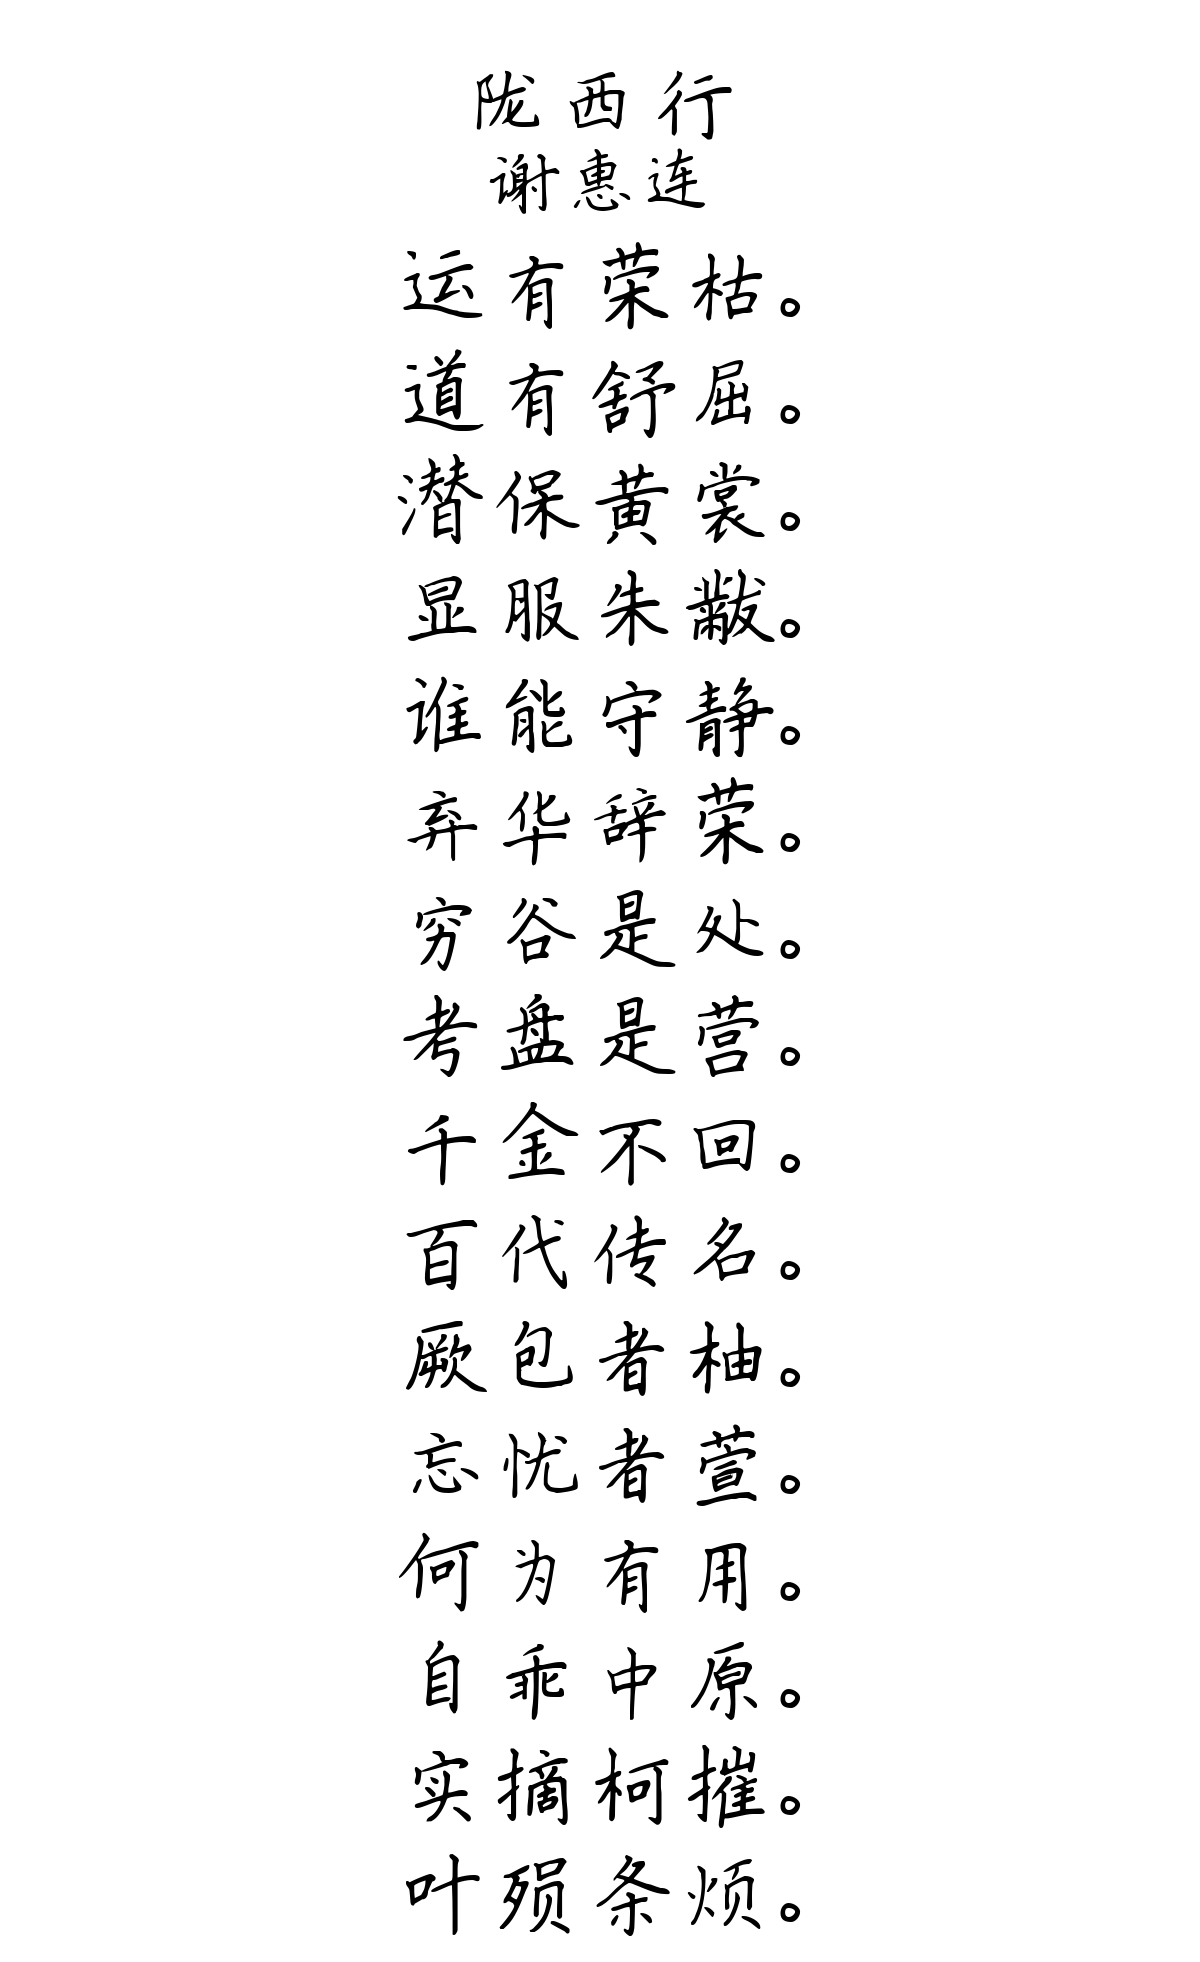 陇西行
谢惠连
运有荣枯。
道有舒屈。
潜保黄裳。
显服朱黻。
谁能守静。
弃华辞荣。
穷谷是处。
考盘是营。
千金不回。
百代传名。
厥包者柚。
忘忧者萱。
何为有用。
自乖中原。
实摘柯摧。
叶殒条烦。